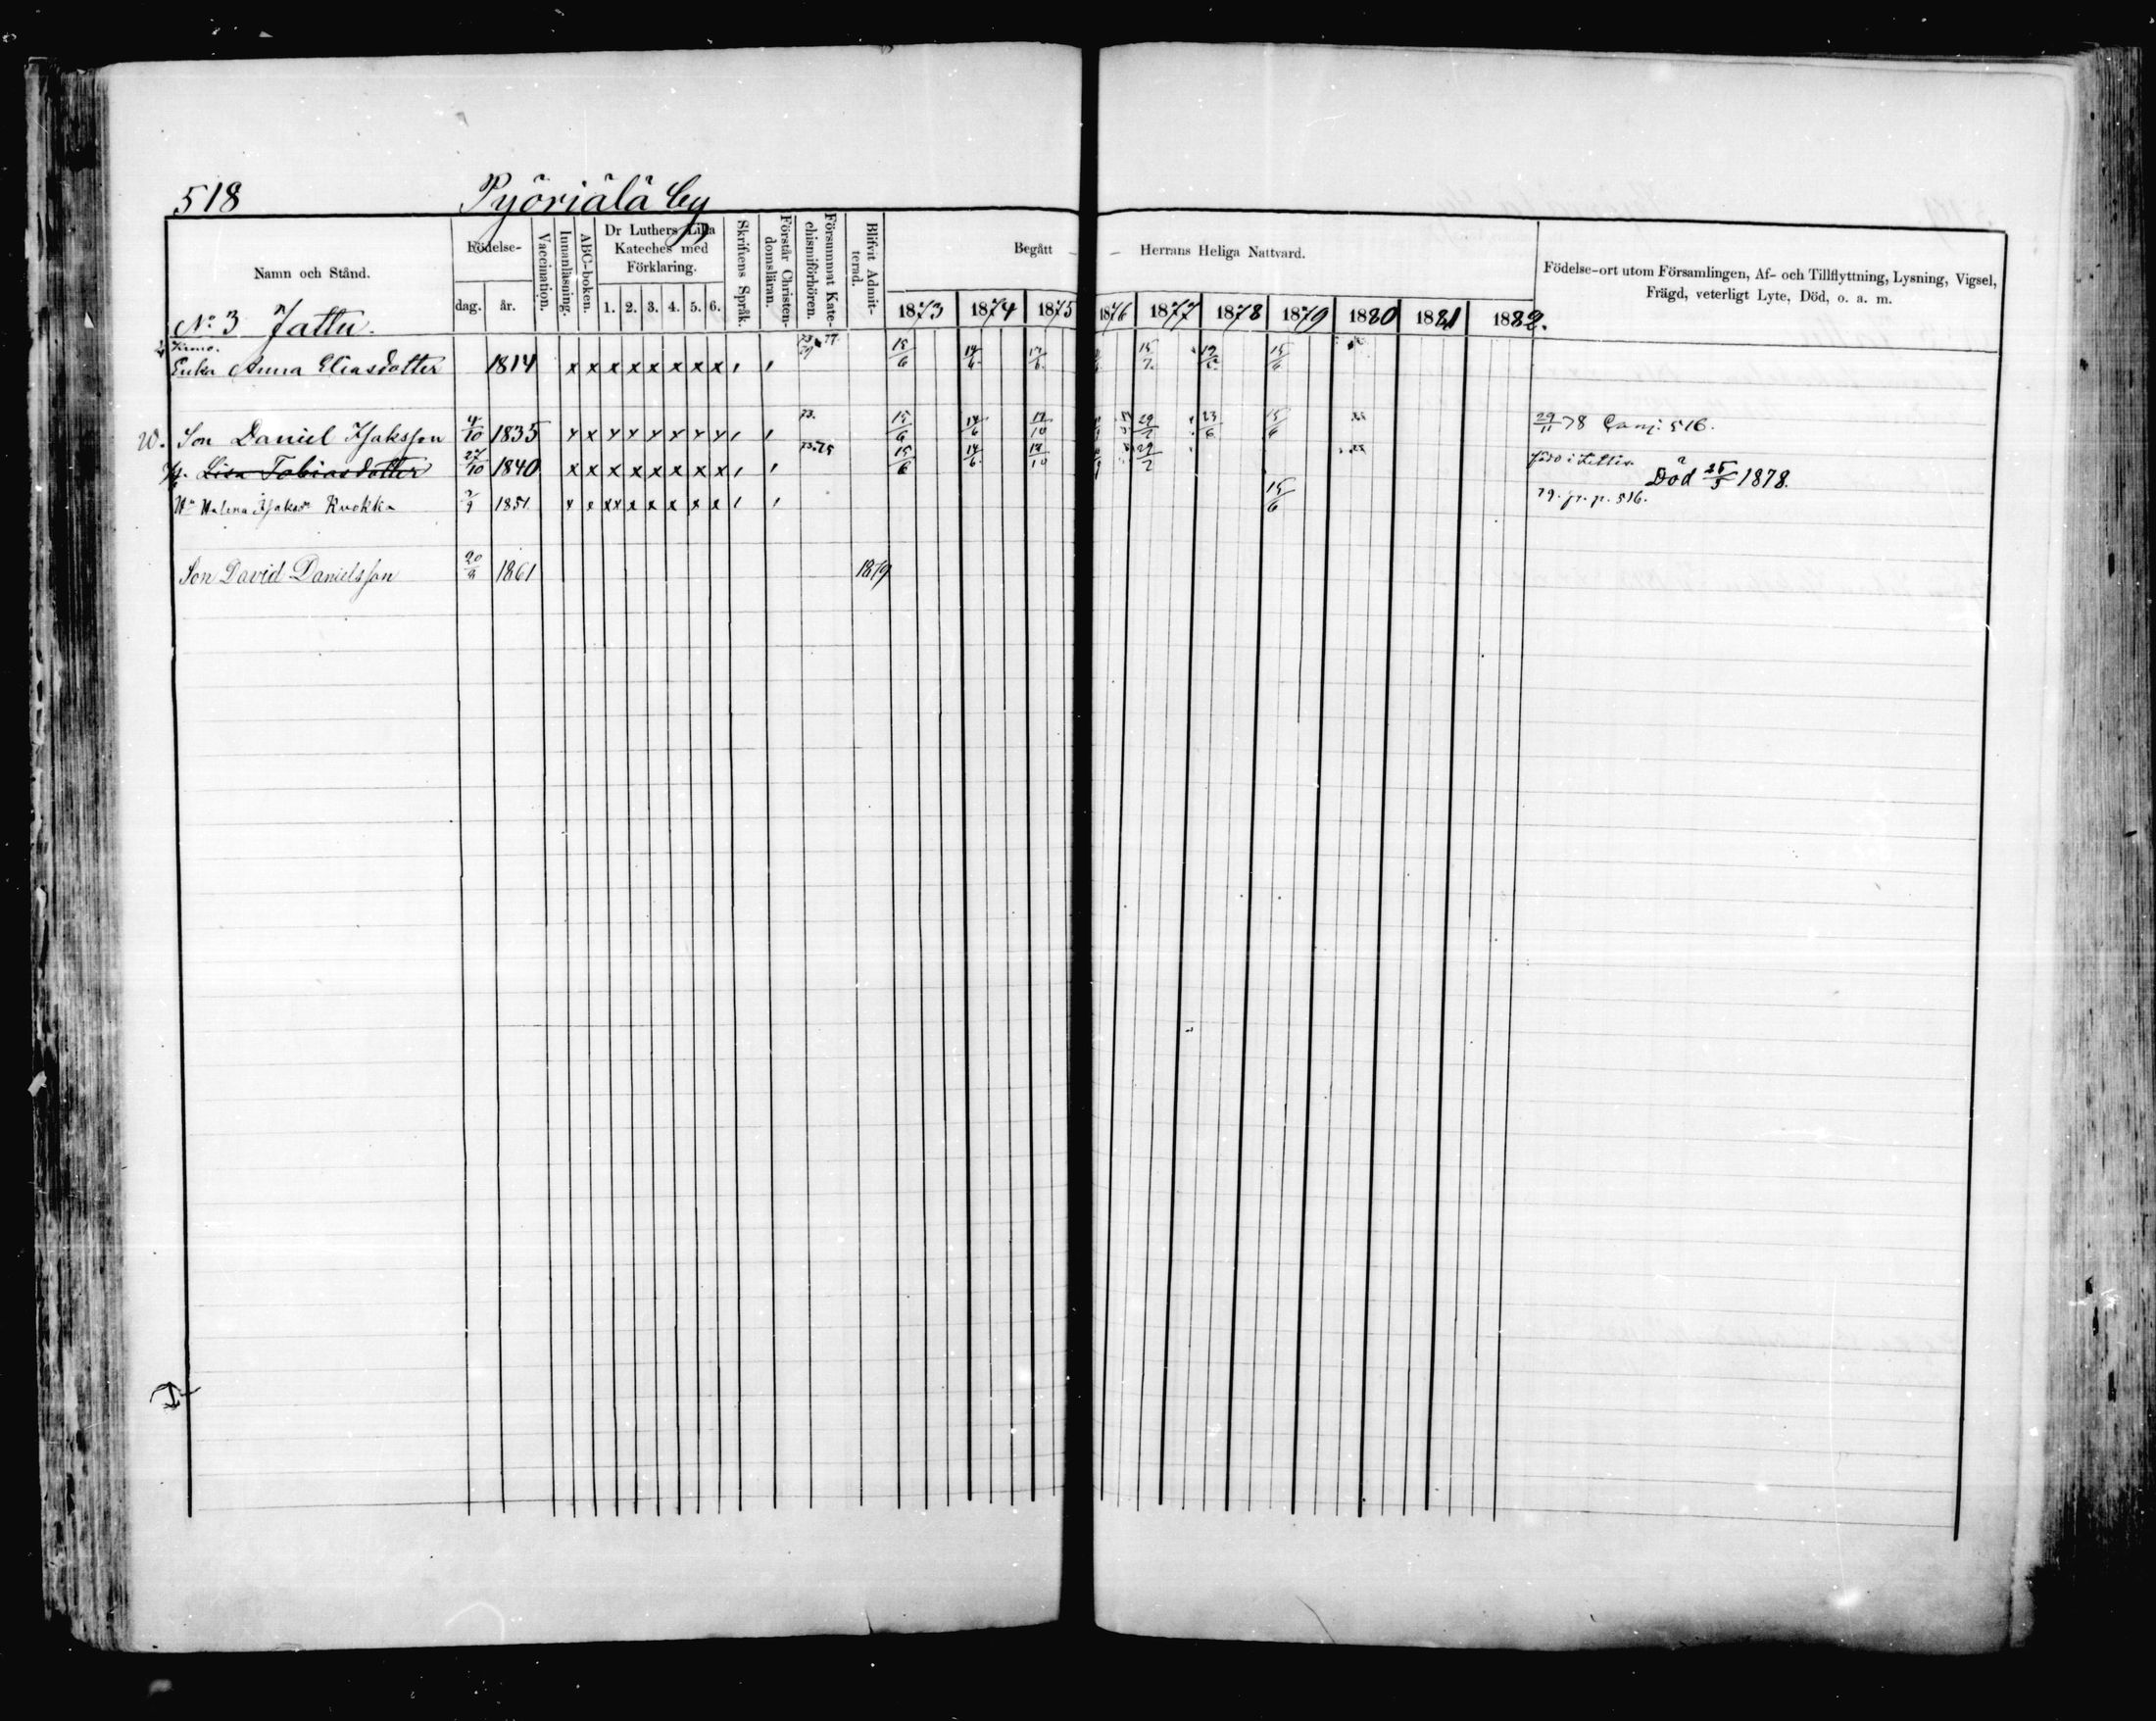 518 Pyöriälä by
Namn och Stånd.
Födelse-
dag. år.
Vaccination.
Innanläsning.
ABC-boken.
Dr Luthers Lilla Kateches med Förklaring.
1. 2. 3. 4. 5. 6.
Skriftens Språk.
Förstår Christendomsläran.
Försummat Katechismiförhören.
Blifvit Admitterad.
Begått — Herrans Heliga Nattvard.
1873 1874 1875 1876 1877 1878 1879 1880 1881 1882.
Födelse-ort utom Församlingen, Af- och Tillflyttning, Lysning, Vigsel,
Frägd, veterligt Lyte, Död, o. a. m.
No 3 Jattu.
Enka Anna Eliasdotter 1814 x x x x x x x x 15/6 14/6 15/6
W. Son Daniel Isaksson 4/10 1835 x x x x x x x x 73. 15/6 14/6 17/10 29/2 23/6 15/6 29/11 78 516.
H. Lisa Tobiasdotter 27/10 1840 x x x x x x x x 73.75 15/6 14/6 17/10 29/2 Död 25/5 1878.
1851 x x x x x x x x 15/6 79. fr. p. 516.
Son David Danielsson 1861 1879